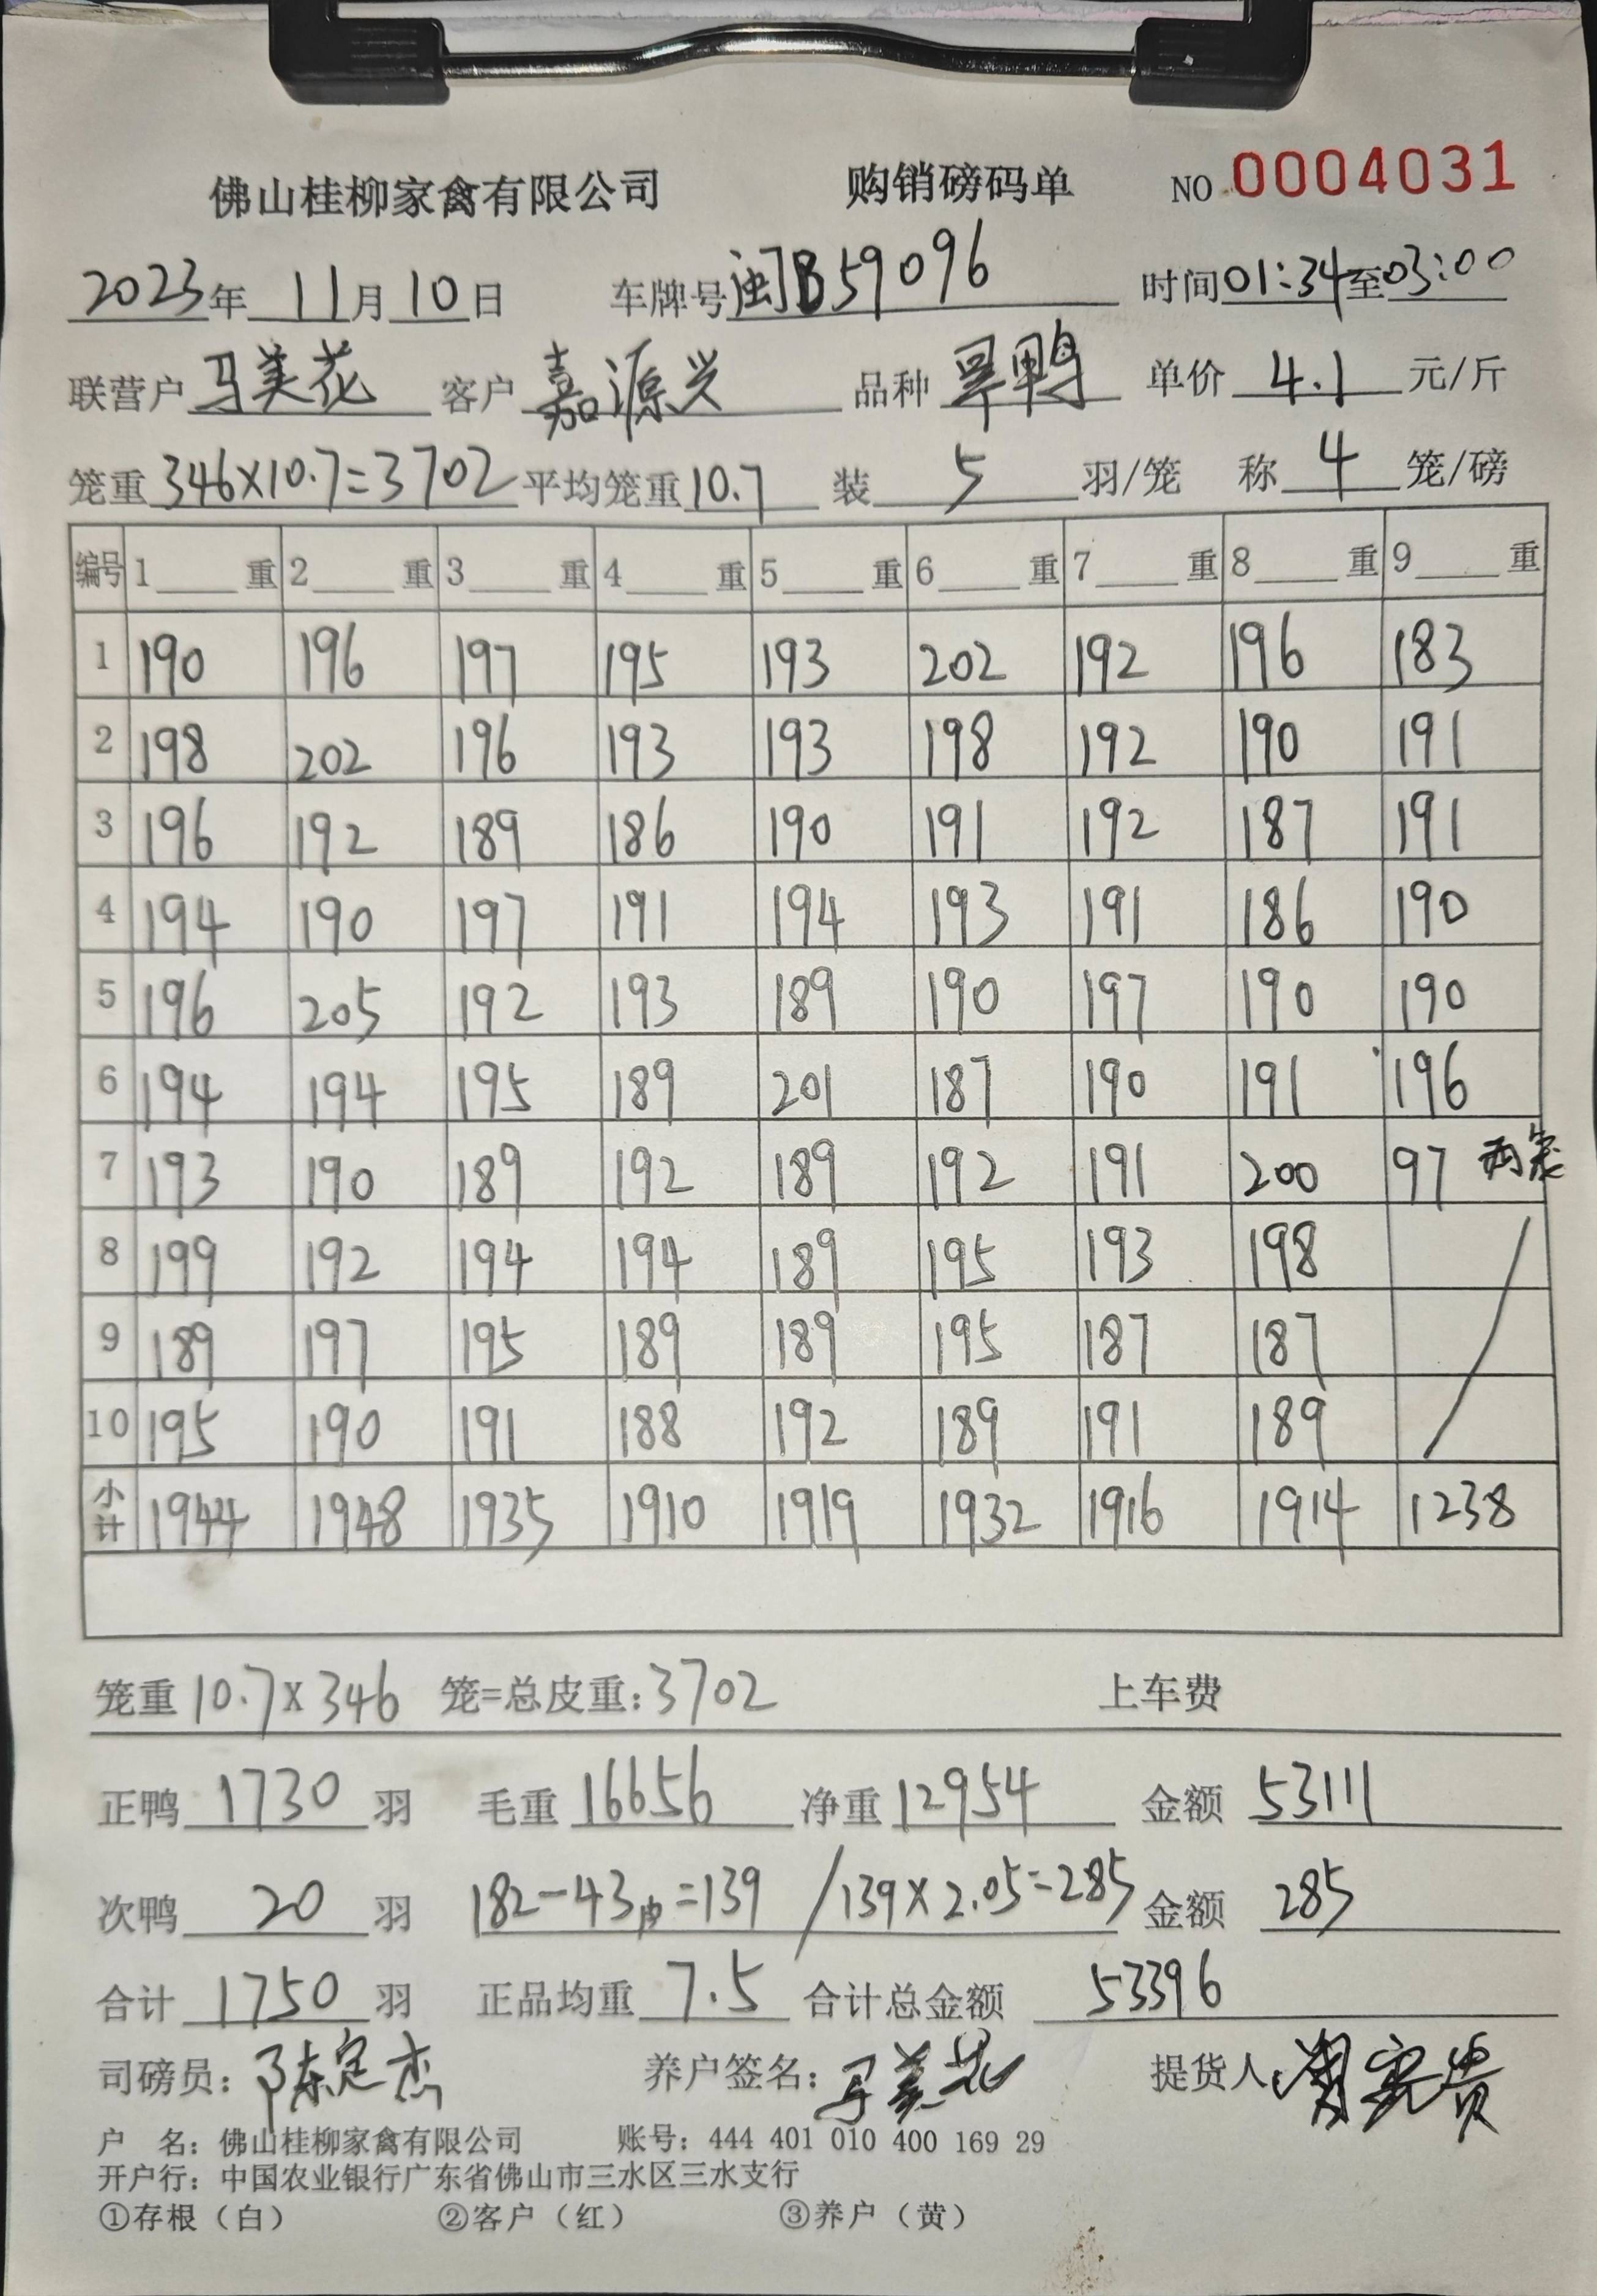 佛山桂柳家禽有限公司 购销磅码单 NO 0004031
2023年 11月10日 车牌号闽B59096 时间01:34至03:00
联营户 马美花 客户 嘉源兴 品种 旱鸭 单价 4.1 元/斤
笼重 346×10.7=3702 平均笼重10.7 装 5 羽/笼 称 4 笼/磅
编号 1____重 2____重 3____重 4____重 5____重 6____重 7____重 8____重 9____重
1 190 196 197 195 193 202 192 196 183
2 198 202 196 193 193 198 192 190 191
3 196 192 189 186 190 191 192 187 191
4 194 190 197 191 194 193 191 186 190
5 196 205 192 193 189 190 197 190 190
6 194 194 195 189 201 187 190 191 196
7 193 190 189 192 189 192 191 200 97 两笼
8 199 192 194 194 189 195 193 198
9 189 197 195 189 189 195 187 187
10 195 190 191 188 192 189 191 189
小计 1944 1948 1935 1910 1919 1932 1916 1914 1238
笼重 10.7×346 笼=总皮重:3702 上车费
正鸭 1730 羽 毛重 16656 净重 12954 金额 53111
次鸭 20 羽 182-43皮=139 / 139×2.05=285 金额 285
合计 1750 羽 正品均重 7.5 合计总金额 53396
司磅员: 陈定杰 养户签名: 马美花 提货人:
户 名: 佛山桂柳家禽有限公司 账号: 444 401 010 400 169 29
开户行: 中国农业银行广东省佛山市三水区三水支行
①存根（白） ②客户（红） ③养户（黄）